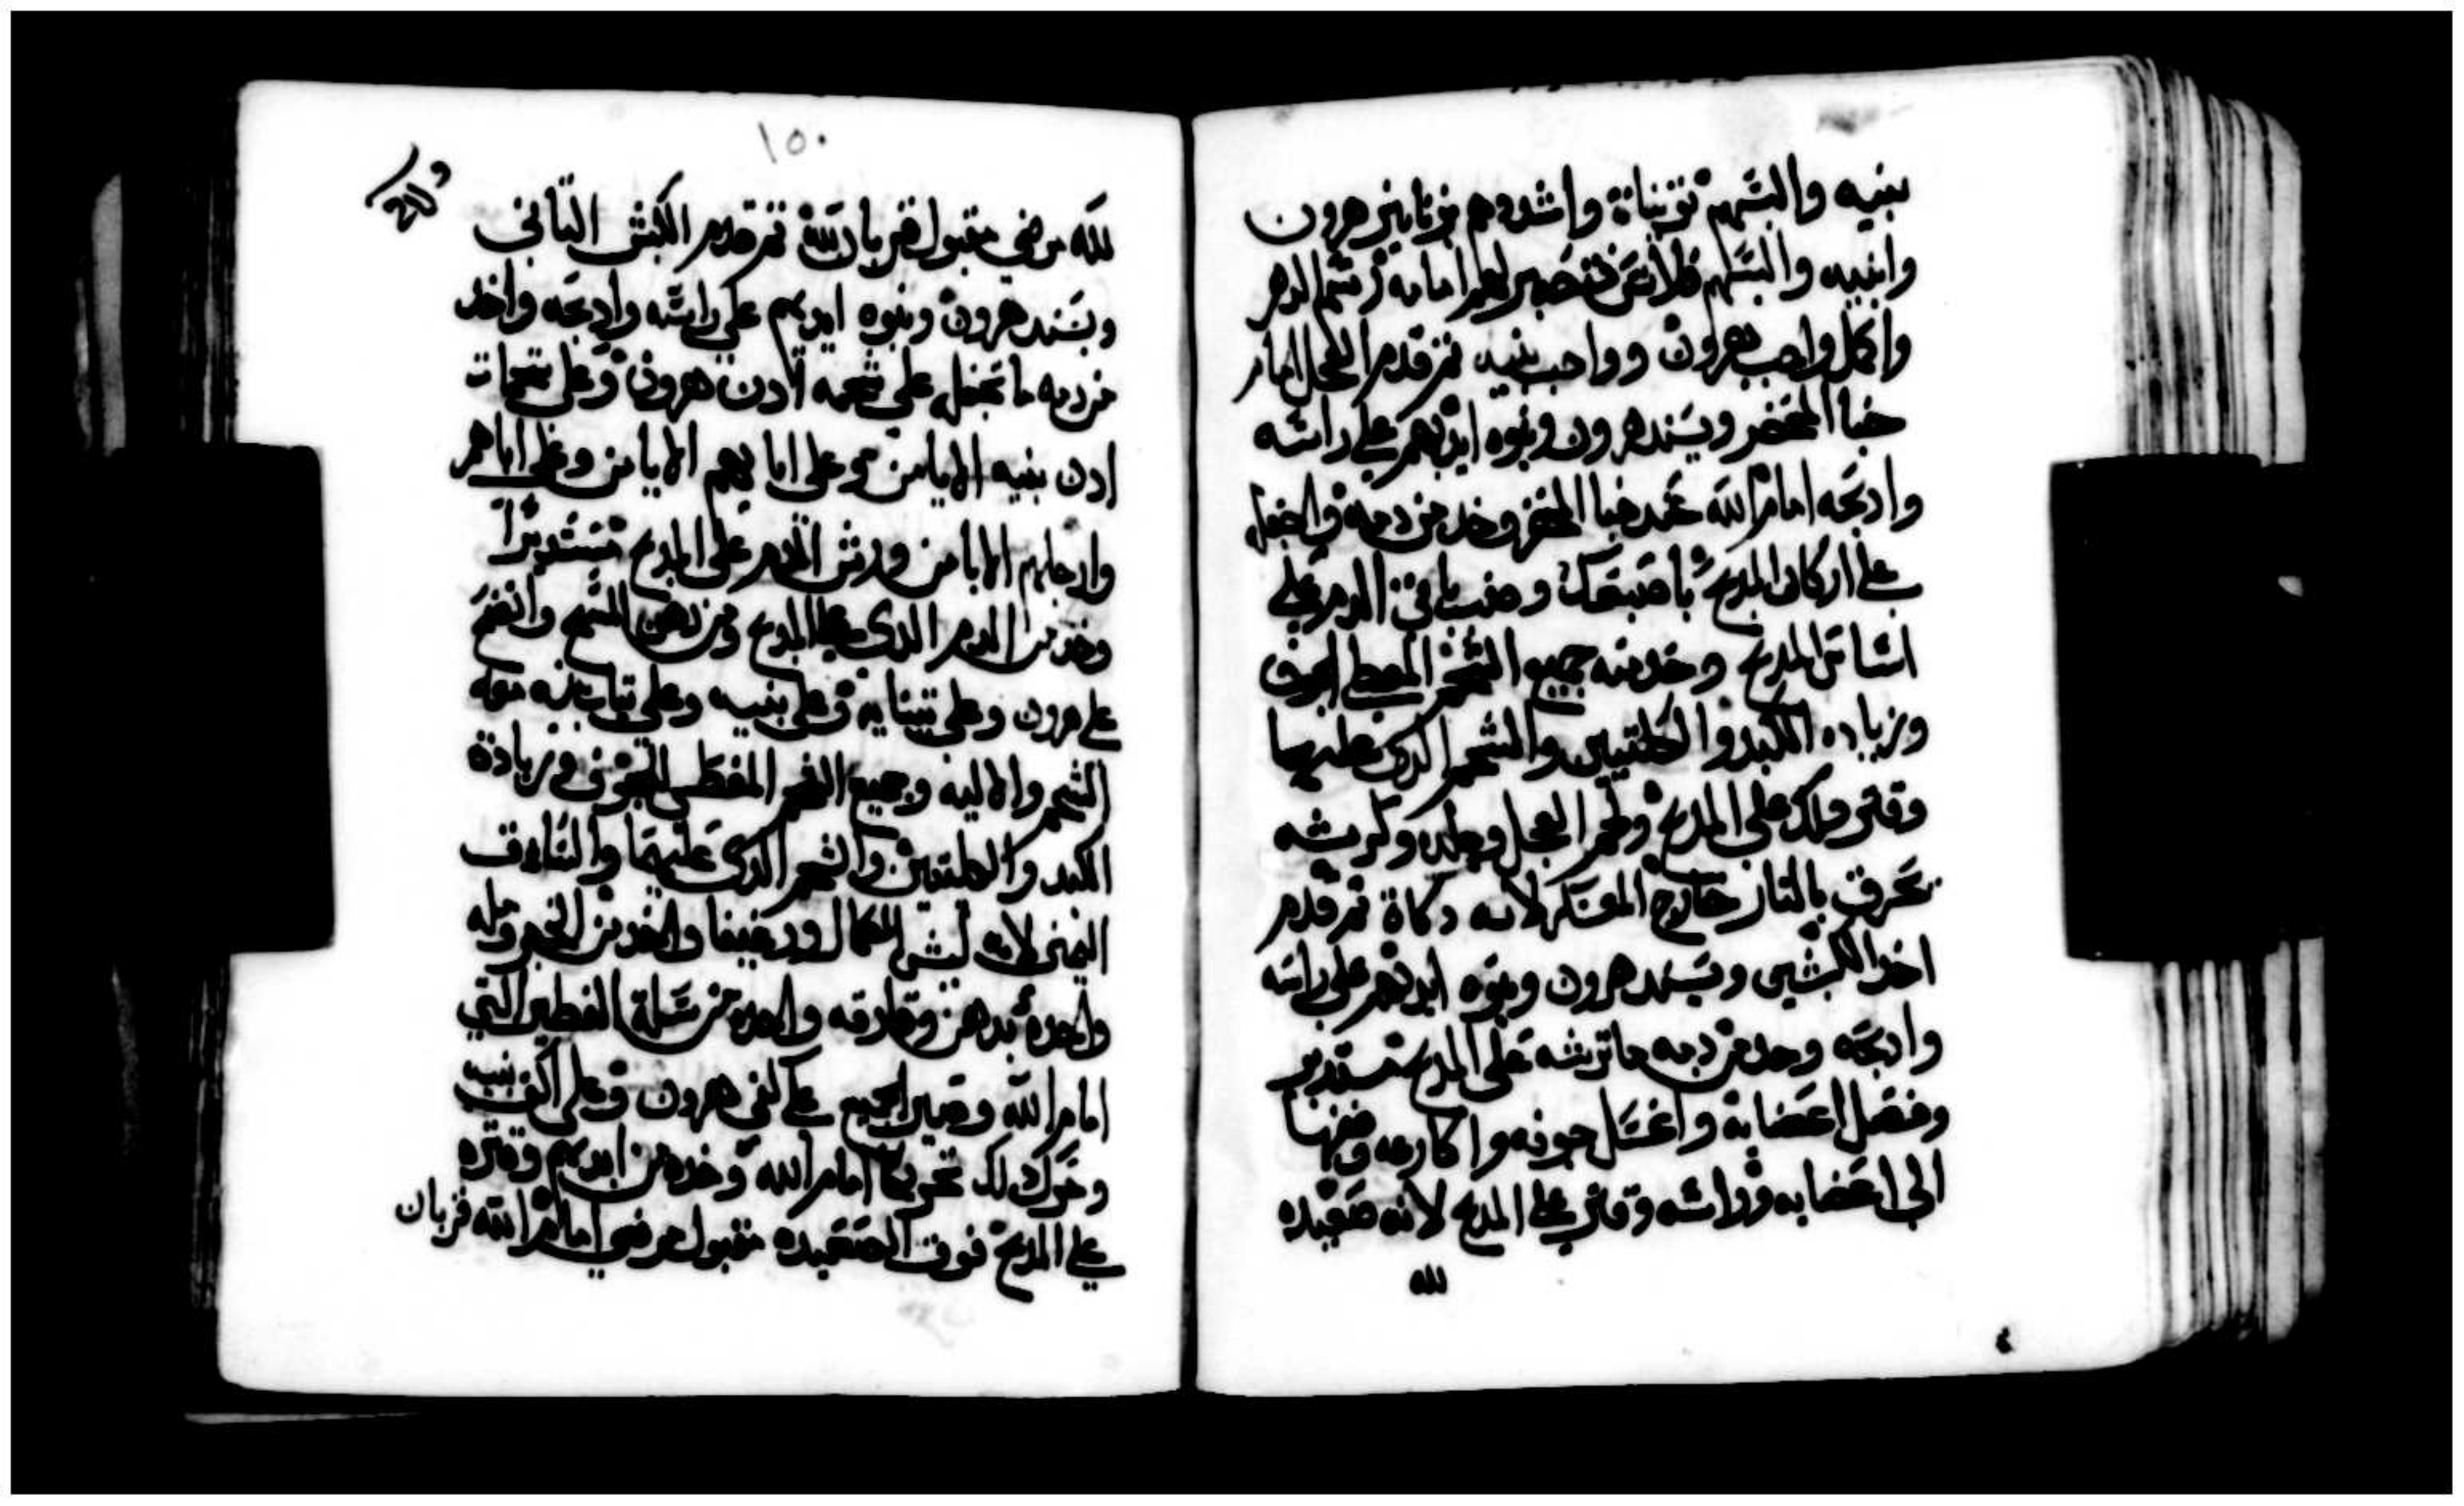 بنيه والبسهم تونياة واشددهم بزنانير هرون
وابنيه والبسهم قلانس فتصير لهم امامة رسم الدهر
واكمل واجب هرون وواجب بنيه ثم قدم العجل امام
خبا المحضر ويسند هرون وبنوه ايديهم على راسه
وادبحه امام الله عند خبا المحضر وخد من دمه واجعل
على اركان المدبح باصبعك وصب باقي الدم على
اساس المدبح وخد منه جميع الشحم المغطي الجوف
وزيادة الكبد والكليتين والشحم الدي عليهما
وقتر دلك على المدبح ولحم العجل وجلده وكرشه
تحرق بالنار خارج المعسكر لانه دكاة ثم قدم
احد الكبشين ويسند هرون وبنوه ايديهم على راسه
وادبحه وخد من دمه ما ترشه على المدبح مستدير
وفصل اعضايه واغسل جوفه واكارعه وضمها
الى اعضايه وراسه وقتر على المدبح لانه صعيده
لله
١٥٠
لله مرضي مقبول قربان لله ثم قدم الكبش التاني
ويسند هرون وبنوه ايديهم على راسه وادبحه واخد
من دمه ما تجعل على شحمه ادن هرون وعلى شحمات
ادن بنيه الايامن وعلى اباهيم الايامن وعلى اباهم
وارجلهم الايامن ورش الدم على المدبح مستديرا
وخد من الدم الدي على المدبح ومن دهن المسح وانضح
على هرون وعلى تيابه وعلى بنيه وعلى تياب بنيه معه
الشحم والاليه وجميع الشحم المغطي الجوف وزيادة
الكبد والكليتين والشحم الدي عليهما والساق
اليمنى لانه كبش الكمال ورغيفا واحد من الخبز وملة
واحدة بدهن ورقاقه واحده من سلة الفطير التي
امام الله وصير الجميع على كفي هرون وعلى اكف بنيه
وحرك دلك تحريكا امام الله وخده من ايديهم وقتره
على المدبح فوق الصعيده مقبول مرضي امام الله قربان